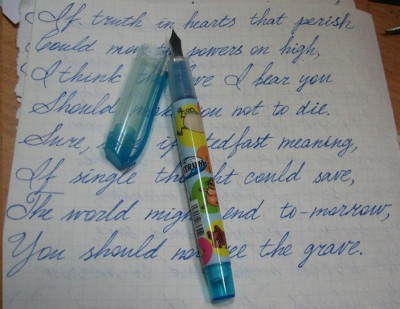 If truth in hearts that perish
Could move powers on high,
I think I bear you
Should you not to die.
Sure, if stedfast meaning,
If single thought could save,
The world might end to-morrow,
You should not see the grave.